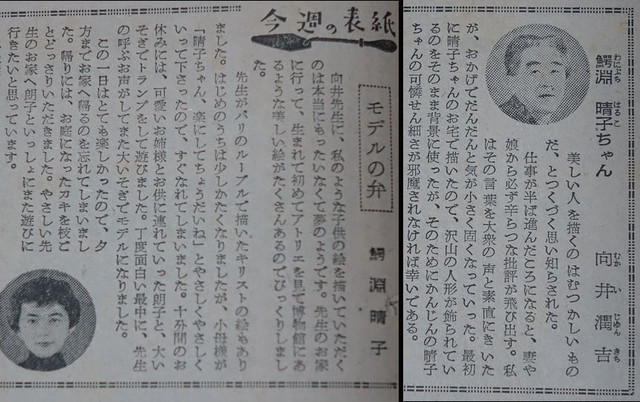 鰐淵 晴子ちゃん
わにぶち はるこ
向井潤吉
むかいじゅんきち
美しい人を描くのはむつかしいもの
だ、とつくづく思い知らされた。
仕事が半ば進んだところになると、妻や
娘から必ず辛らつな批評が飛び出す。私
はその言葉を大衆の声と素直にきいた
が、おかげでだんだんと気が小さく固くなっていった。最初
に晴子ちゃんのお宅で描いたので、沢山の人形が飾られてい
るのをそのまま背景に使ったが、そのためにかんじんの晴子
ちゃんの可憐せん細さが邪魔されなければ幸いである。
今週の表紙
モデルの弁
鰐淵晴子
向井先生に、私のような子供の絵を描いていただく
のは本当にもったいなくて夢のようです。先生のお家
に行って、生まれて初めてアトリエを見て博物館にあ
るような美しい絵がたくさんあるのでびっくりしまし
た。
先生がパリのルーブルで描いたキリストの絵もあり
ました。はじめのうちは少しかたくなりましたが、小母様が
「晴子ちゃん、楽にしてちょうだいね」とやさしくやさしく
いって下さったので、すぐなれてしまいました。十分間のお
休みには、可愛いお嬢様とお供に連れていった朗子と、大い
そぎでトランプをして遊びました。丁度面白い最中に、先生
の呼ぶお声がしてまた大いそぎでモデルになりました。
この一日はとても楽しかったので、夕
方までお家へ帰るのを忘れてしまいまし
た。帰りには、お庭になったカキを枝ご
とどっさりいただきました。やさしい先
生のお家へ朗子といっしょにまた遊びに
行きたいと思っています。